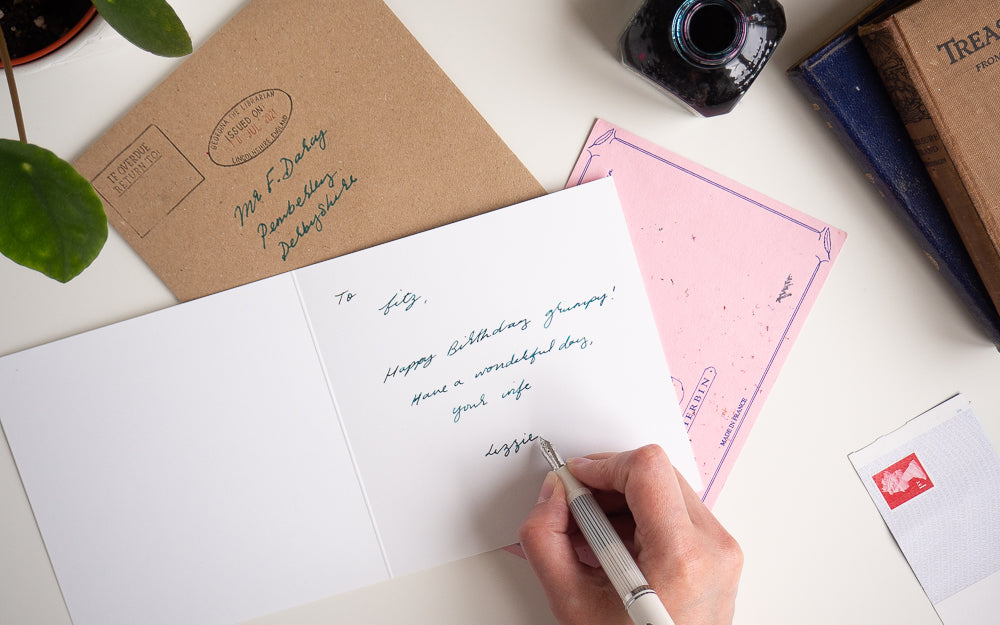 IF OVERDUE
RETURN TO:
GEORGINA THE LIBRARIAN
ISSUED ON:
JUL 2021
LINCOLNSHIRE, ENGLAND
Mr F. Darcy
Pemberley
Derbyshire
To fitz,
Happy Birthday grumpy!
Have a wonderful day,
your wife
Lizzie
HERBIN
MADE IN FRANCE
TREAS
FROM
1st